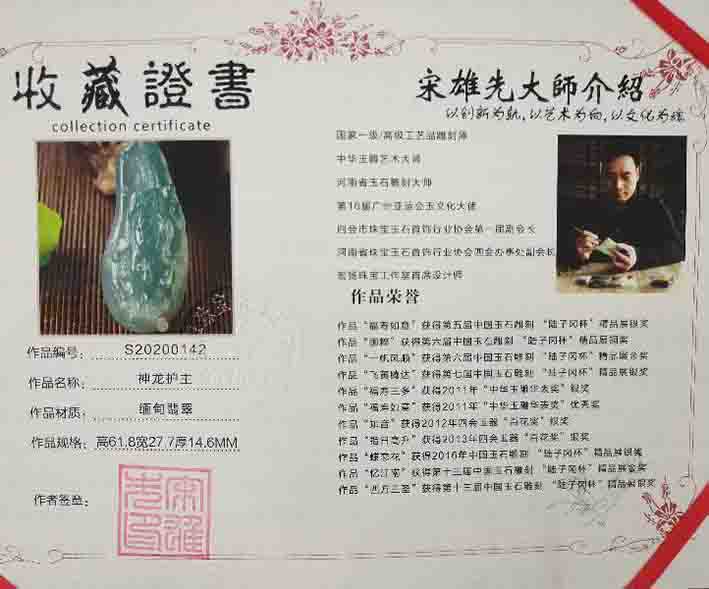 收藏證書
collection certificate
作品编号: S20200142
作品名称: 神龙护主
作品材质: 缅甸翡翠
作品规格: 高61.8宽27.7厚14.6MM
作者签章:
宋雄先大師介紹
以创新为轨,以艺术为向,以文化为魂
国家一级/高级工艺品雕刻师
中华玉雕艺术大师
河南省玉石雕刻大师
第16届广州亚运会玉文化大使
四会市珠宝玉石首饰行业协会第一届副会长
河南省珠宝玉石首饰行业协会四会办事处副会长
珠宝工作室首席设计师
作品荣誉
作品“福寿如意”获得第五届中国玉石雕刻 “陆子冈杯”精品展银奖
作品“国粹”获得第六届中国玉石雕刻 “陆子冈杯”精品展铜奖
作品“一帆风顺”获得第六届中国玉石雕刻 “陆子冈杯”精品展金奖
作品“飞黄腾达”获得第七届中国玉石雕刻 “陆子冈杯”精品展银奖
作品“福寿三多”获得2011年“中华玉雕华表奖”银奖
作品“福寿如意”获得2011年“中华玉雕华表奖”优秀奖
作品“知音”获得2012年四会玉器“百花奖”银奖
作品“指日高升”获得2013年四会玉器“百花奖”银奖
作品“蝶恋花”获得2016年中国玉石雕刻 “陆子冈杯”精品展银奖
作品“忆江南”获得第十三届中国玉石雕刻 “陆子冈杯”精品展金奖
作品“西方三圣”获得第十三届中国玉石雕刻 “陆子冈杯”精品展银奖